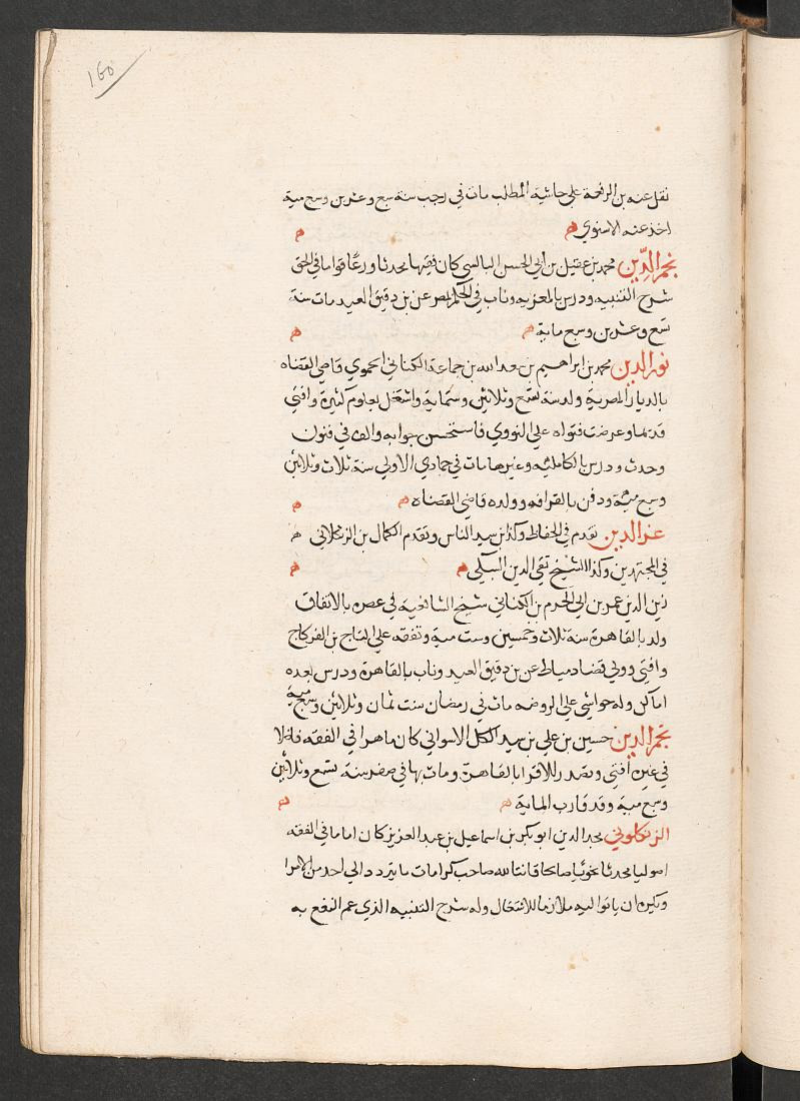 160
نقل عنه بن الرفعة على حاشية المطلب مات في رجب سنة سبع وعشرين وسبع مية
اخذ عنه الاسنوي م م
نجم الدين محمد بن عقيل بن ابي الحسن البالسي كان فقيها محدثا ورعا قواما في الحق
شرح التنبيه ودرس بالمعزيه وناب في الحكم بمصر عن بن دقيق العيد مات سنة
تسع وعشرين وسبع ماية م م
نور الدين محمد بن ابراهيم بن سعد الله بن جماعة الكناني الحموي قاضي القضاه
بالديار المصرية ولد سنة تسع وثلاثين وستماية واشتغل بعلوم كثيرة وافتى
قديما وعرضت فتواه على النووي فاستحسن جوابه والف في فنون
وحدث ودرس بالكاملية وغيرها مات في جمادي الاولى سنة ثلاث وثلاثين
وسبع مية ودفن بالقرافه وولده قاضي القضاه م م
عز الدين تقدم في الحفاظ وكذا بن سيد الناس وتقدم الكمال بن الزملكاني م
في المجتهدين وكذا الشيخ تقي الدين السبكي م م
زين الدين عمر بن ابي الحرم بن الكناني شيخ الشافعية في عصره بالاتفاق
ولد بالقاهرة سنة ثلاث وخمسين وست مية وتفقه على التاج بن الفركاح
وافتى وولي قضا دمياط عن بن دقيق العيد وناب بالقاهرة ودرس بعده
اماكن وله حواشي على الروضه مات في رمضان سنت ثمان وثلاثين وسبع مية
نجم الدين حسين بن علي بن سيد الكل الاسواني كان ماهرا في الفقه فاضلا
في غيره افتى وتصدر للاقرا بالقاهرة ومات بها في صفر سنة تسع وثلاثين
وسبع مية وقد قارب الماية م م
الزنكلوني مجد الدين ابو بكر بن اسماعيل بن عبد العزيز كان اماما في الفقه
اصوليا محدثا نحويا صالحا قانتا لله صاحب كرامات ما يتردد الى احد من الامرا
ويكره ان ياتوا اليه ملازما للاشتغال وله شرح التنبيه الذي عم النفع به